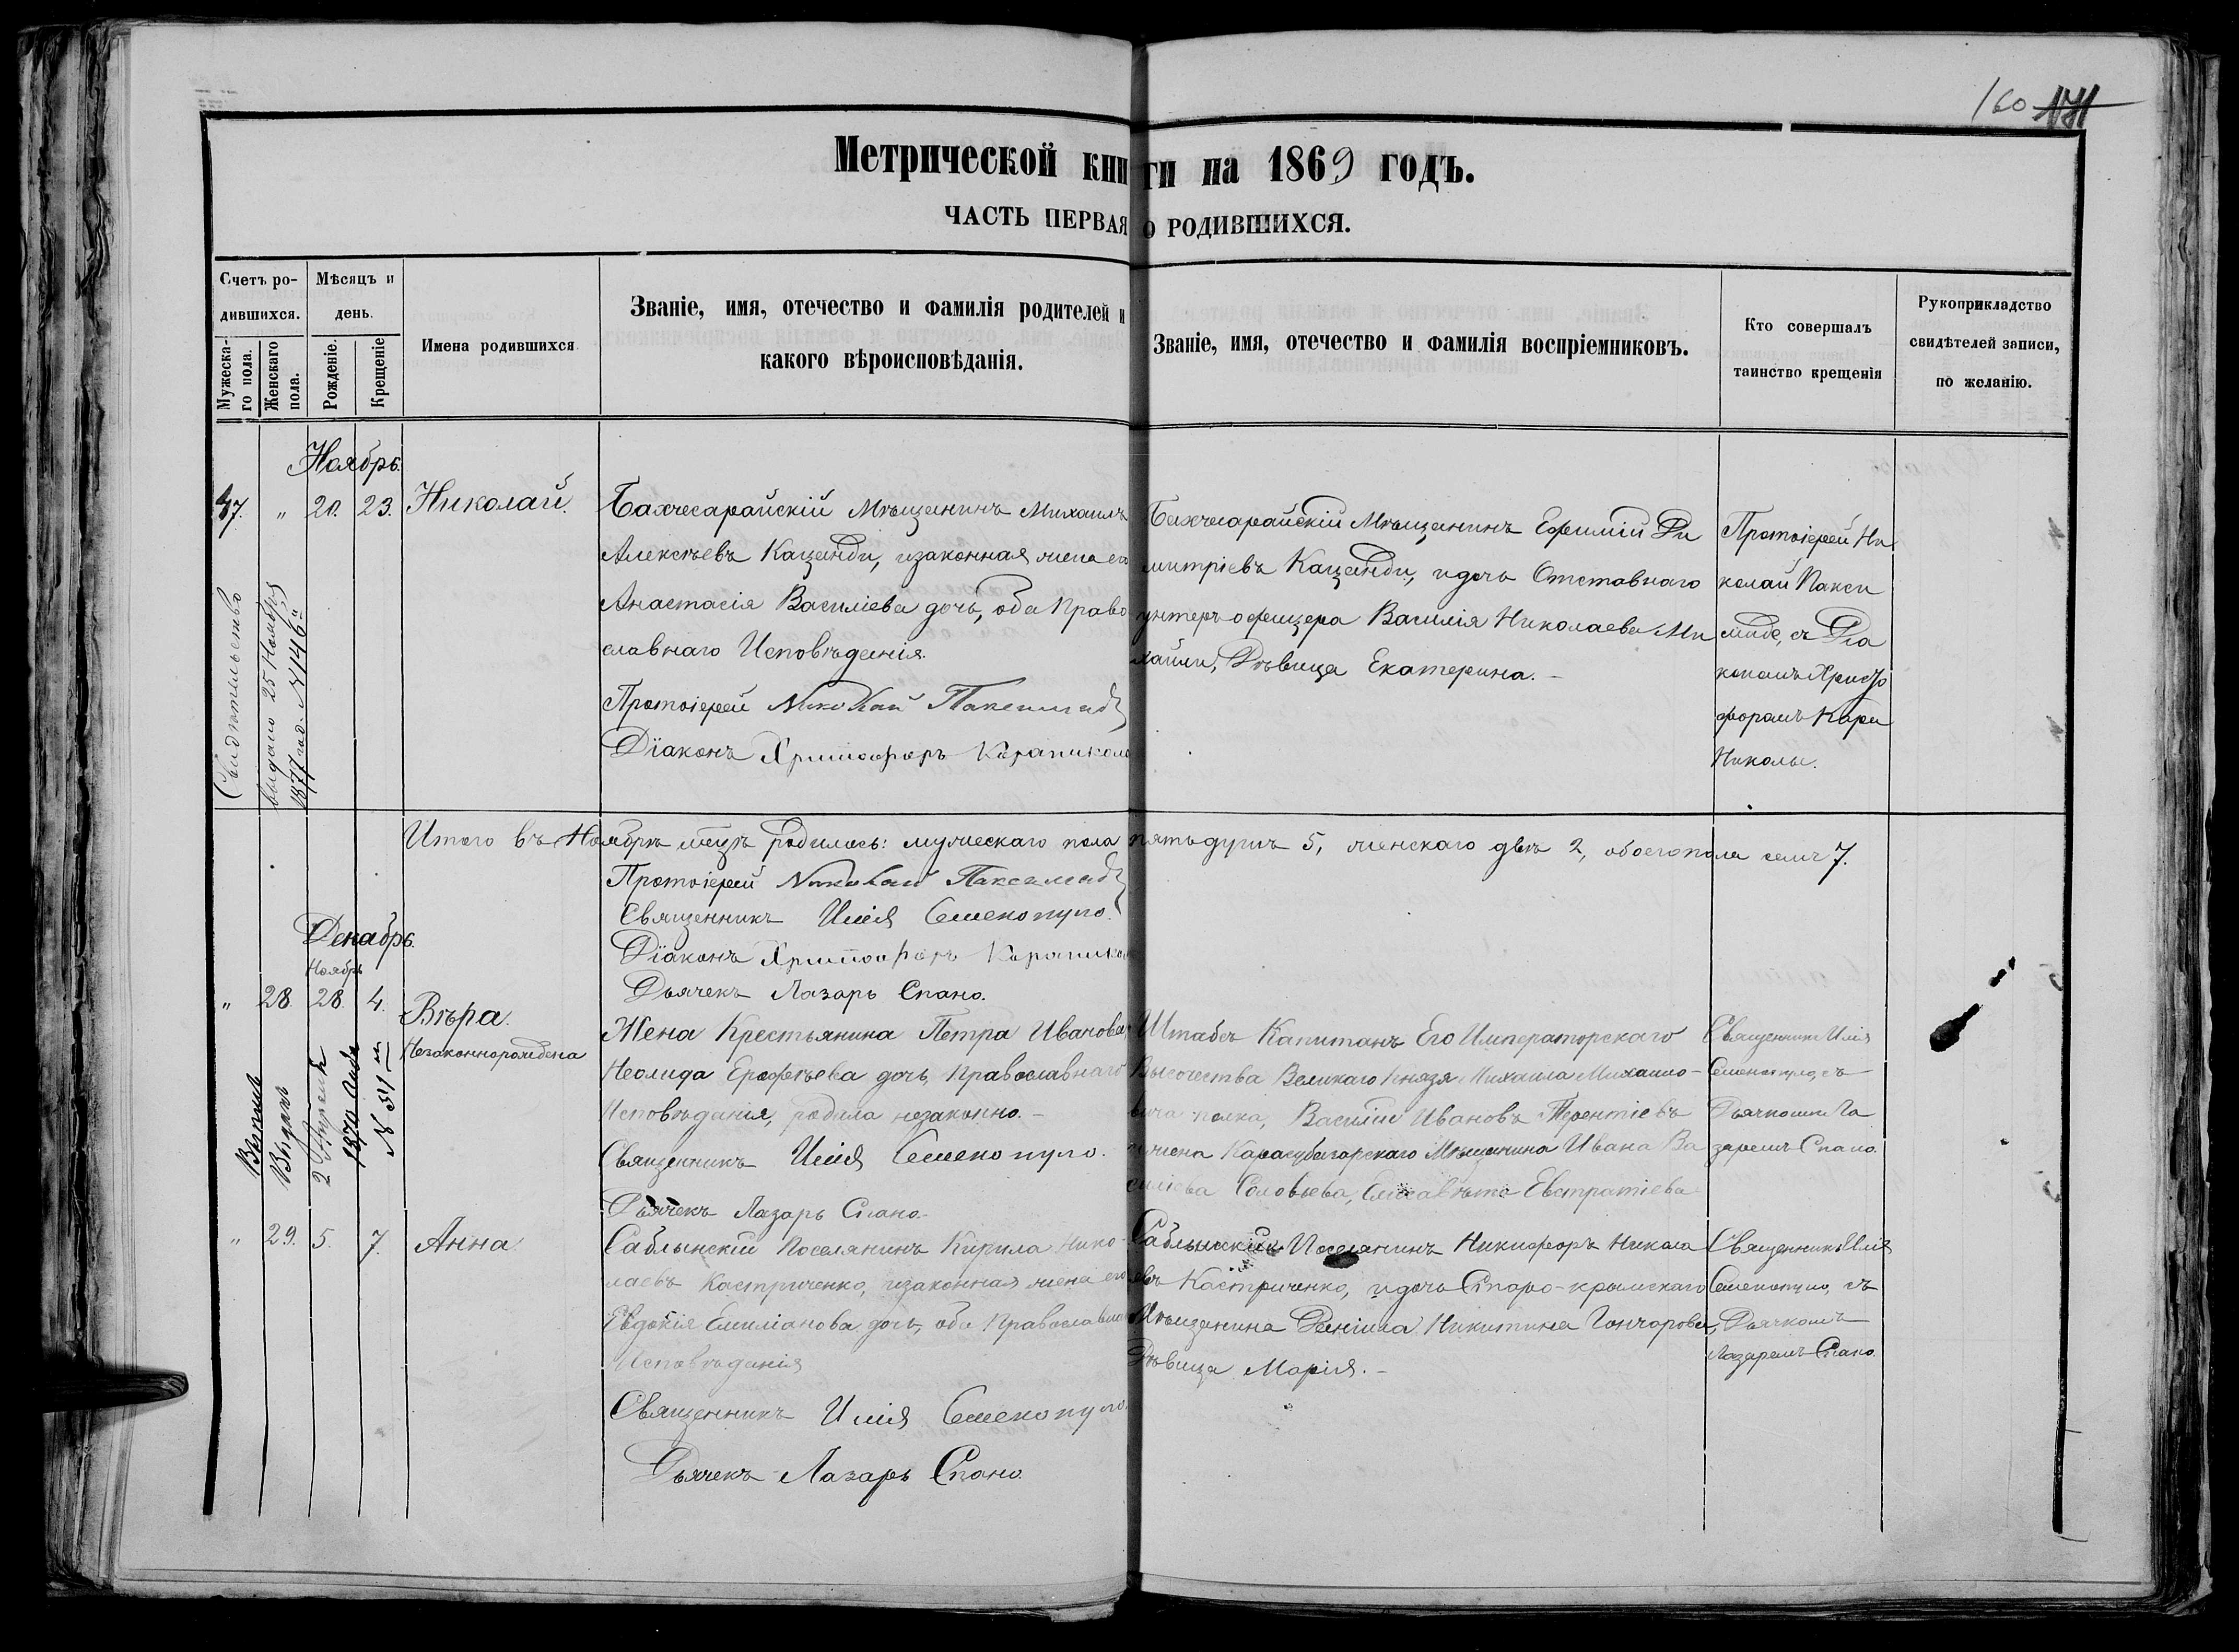 160 171
Метрической книги на 1869 годъ.
ЧАСТЬ ПЕРВАЯ О РОДИВШИХСЯ.
Счетъ ро-
дившихся.
Мѣсяцъ и
день.
Мужеска-
го пола.
Женскаго
пола.
Рожденіе.
Крещеніе
Имена родившихся
Званіе, имя, отечество и фамилія родителей и
какого вѣроисповѣданія.
Званіе, имя, отечество и фамилія воспріемниковъ.
Кто совершалъ
таинство крещенія
Рукоприкладство
свидѣтелей записи,
по желанію.
Ноябрь.
47. " 20. 23. Николай.
Бахчесарайскій Мѣщанинъ Михаилъ
Алексѣевъ Каценди, изаконная жена его
Анастасія Василіева дочь, оба Право
славнаго Исповѣданія.
Протоіерей Николай Паксимадъ
Діаконъ Христофоръ Караникола
Бахчесарайскій Мѣщанинъ Ефимій Ди
митріевъ Каценди, идочь Отставнаго
унтеръ офицера Василія Николаева Ми
хайли, Дѣвица Екатерина. -
Протоіерей Ни
колай Пакси
мадъ, съ Діа
кономъ Христо
форомъ Кара
Николы.
Свидѣтельство
выдано 25 Ноября
1877 год. №146й
Итого въ Ноябрѣ мѣцѣ родилось: мужескаго пола пять душъ 5, женскаго двѣ 2, обоего пола семь 7.
Протоіерей Николай Паксимадъ
Священникъ Илія Семенопуло.
Діаконъ Христофоръ Караникола
Дьячекъ Лазарь Спано.
Декабрь.
Ноябрь
" 28. 28. 4. Вѣра.
Незаконнорождена
Жена Крестьянина Петра Иванова,
Неолида Ерофѣева дочь, Православнаго
Исповѣданія, родила незаконно. -
Священникъ Илія Семенопуло.
Дьячекъ Лазарь Спано.
Штабсъ Капитанъ Его Императорскаго
Высочества Великаго Князя Михаила Михаило-
вича полка, Василій Ивановъ Терентіевъ
ижена Карасубазарскаго Мѣщанина Ивана Ва
силіева Соловьева, Елисавета Евстратіева
Священникъ Илія
Семенопуло, съ
Дьячкомъ Ла
заремъ Спано.
Выданъ
1870 года
" 29. 5. 7. Анна
Саблынскій Поселянинъ Кирила Нико-
лаевъ Костриченко, изаконная жена его
Евдокія Емиліанова дочь, оба Православнаго
Исповѣданія
Священникъ Илія Семенопуло.
Дьячекъ Лазарь Спано
Саблынскій Поселянинъ Никифоръ Никола
евъ Костриченко, идочь Старо-крымскаго
Мѣщанина Даніила Никитина Гончарова,
Дѣвица Марія. -
Священникъ Илія
Семенопуло, съ
Дьячкомъ
Лазаремъ Спано.